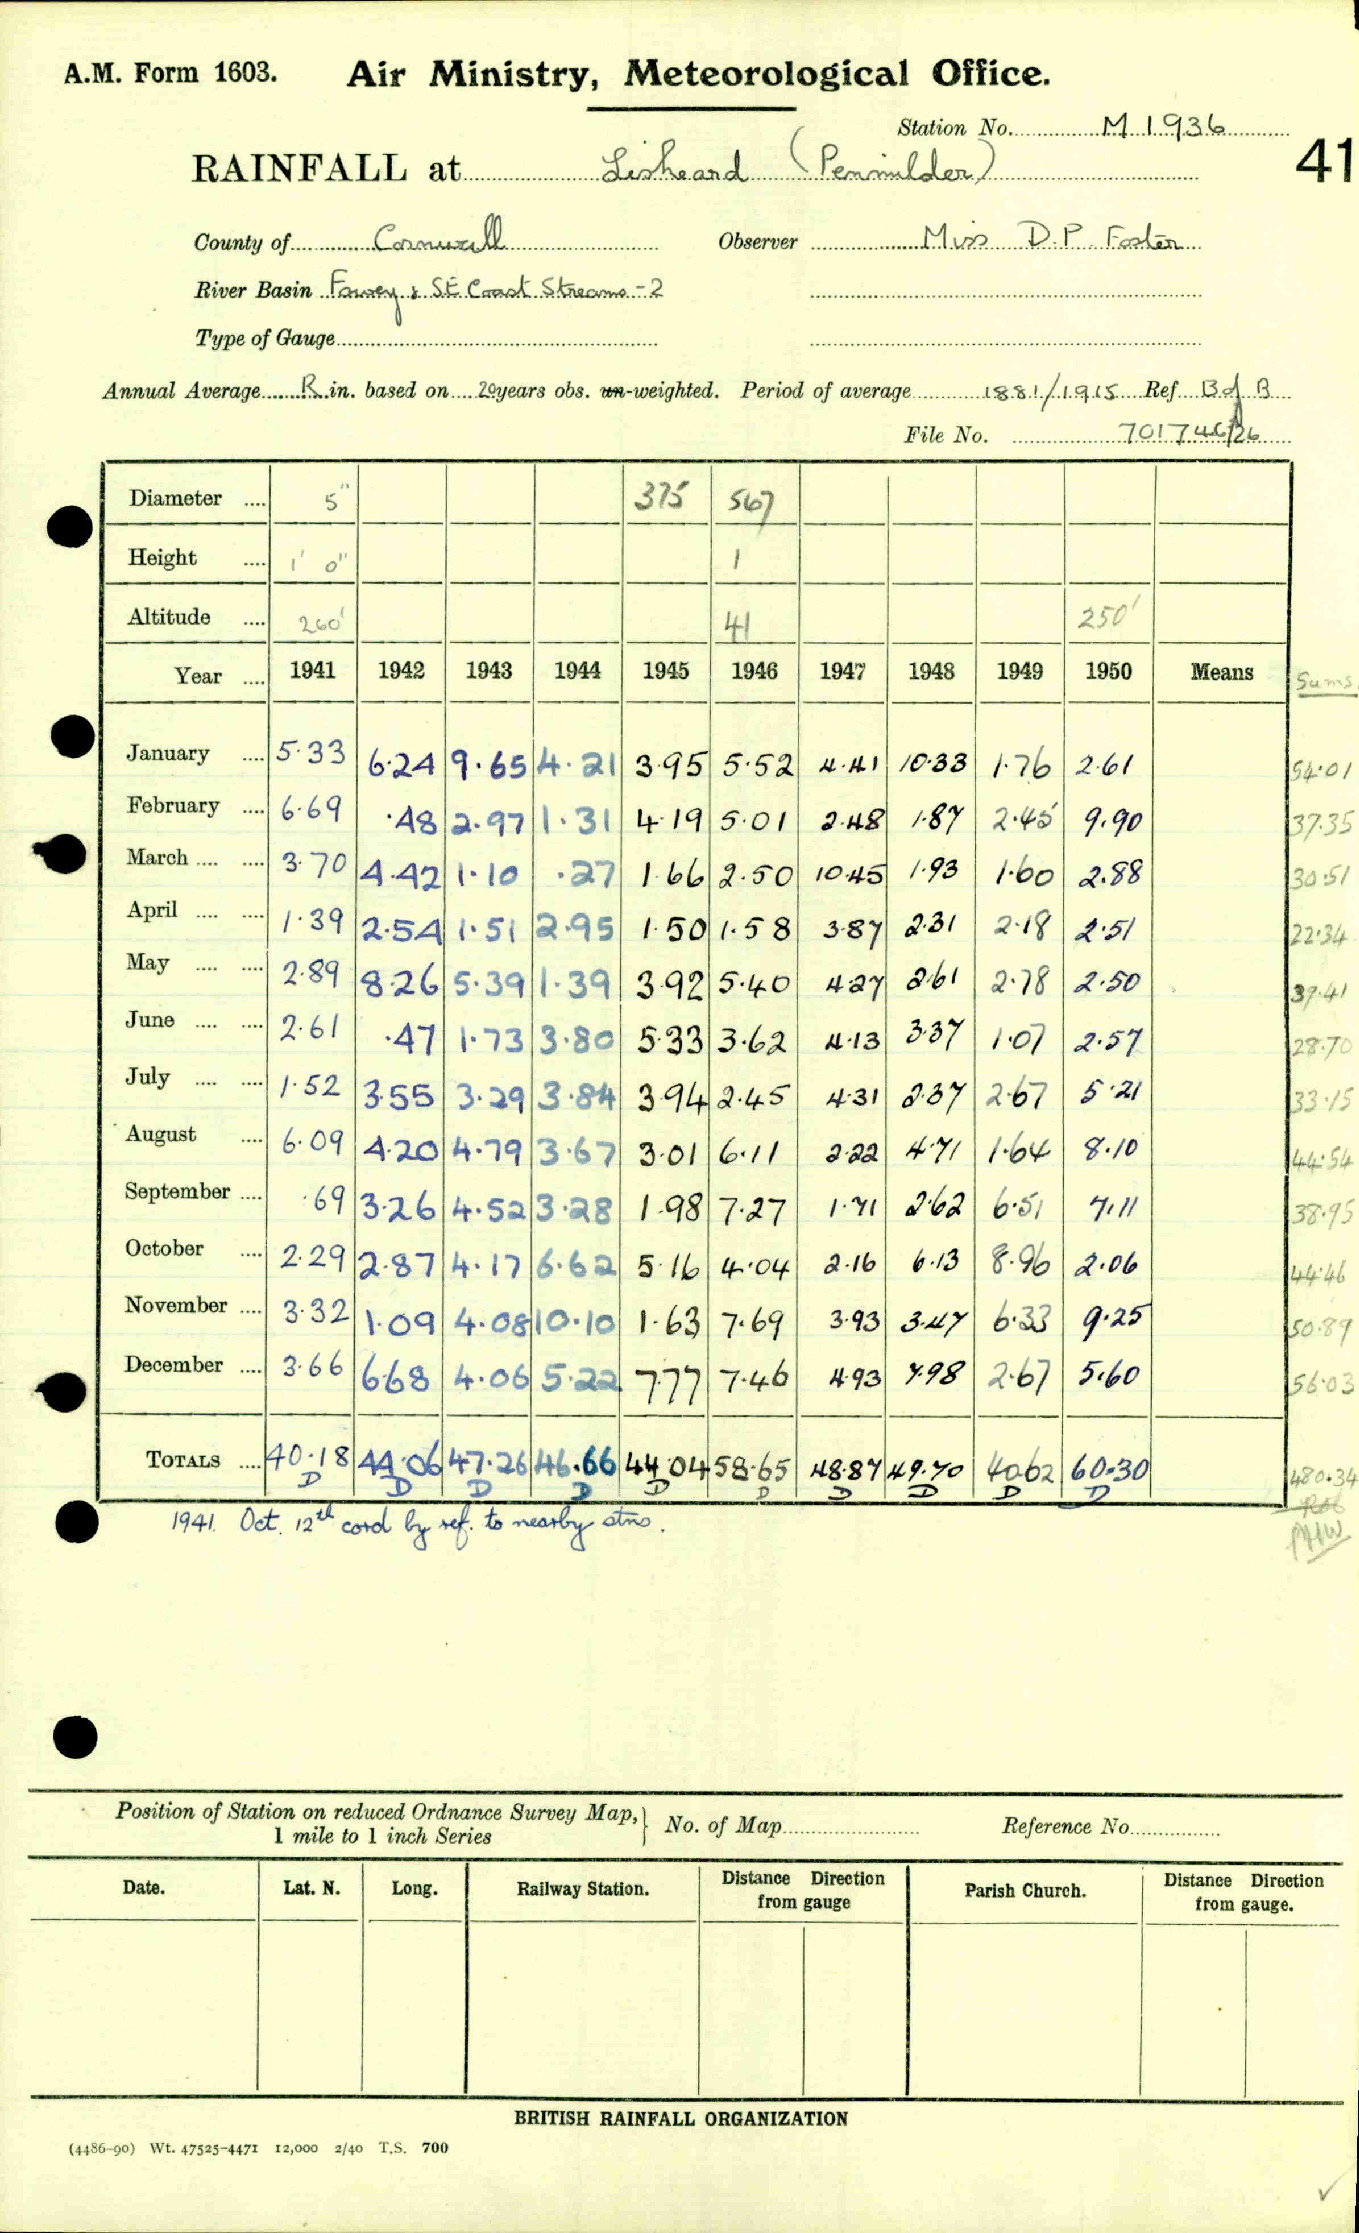 A.M. Form 1603. Air Ministry, Meteorological Office.
Station No. M 1936
41
RAINFALL at Liskeard (Penmilder)
County of Cornwall Observer Miss D.P. Foster
River Basin Fowey & SE Coast Streams - 2
Type of Gauge
Annual Average R in. based on 20 years obs. un-weighted. Period of average 1881/1915 Ref B of B
File No.
Diameter .... 5" 375 567
Height .... 1' 0" 1
Altitude .... 260' 41 250'
Year .... 1941 1942 1943 1944 1945 1946 1947 1948 1949 1950 Means Sums
January .... 5.33 6.24 9.65 4.21 3.95 5.52 4.41 10.33 1.76 2.61 54.01
February .... 6.69 .48 2.97 1.31 4.19 5.01 2.48 1.87 2.45 9.90 37.35
March .... .... 3.70 4.42 1.10 .27 1.66 2.50 10.45 1.93 1.60 2.88 30.51
April .... .... 1.39 2.54 1.51 2.95 1.50 1.58 3.87 2.31 2.18 2.51 22.34
May .... .... 2.89 8.26 5.39 1.39 3.92 5.40 4.27 2.61 2.78 2.50 39.41
June .... .... 2.61 .47 1.73 3.80 5.33 3.62 4.13 3.37 1.07 2.57 28.70
July .... .... 1.52 3.55 3.29 3.84 3.94 2.45 4.31 2.37 2.67 5.21 33.15
August .... 6.09 4.20 4.79 3.67 3.01 6.11 2.22 4.71 1.64 8.10 44.54
September .... .69 3.26 4.52 3.28 1.98 7.27 1.71 2.62 6.51 7.11 38.95
October .... 2.29 2.87 4.17 6.62 5.16 4.04 2.16 6.13 8.96 2.06 44.46
November .... 3.32 1.09 4.08 10.10 1.63 7.69 3.93 3.47 6.33 9.25 50.89
December .... 3.66 6.68 4.06 5.22 7.77 7.46 4.93 7.98 2.67 5.60 56.03
TOTALS .... 40.18 44.06 47.26 46.66 44.04 58.65 48.87 49.70 40.62 60.30 480.34
D D D D D D D D D D
1941. Oct. 12th cord by ref. to nearby stns.
Position of Station on reduced Ordnance Survey Map, } No. of Map Reference No.
1 mile to 1 inch Series
Date. Lat. N. Long. Railway Station. Distance Direction from gauge Parish Church. Distance Direction from gauge.
BRITISH RAINFALL ORGANIZATION
(4486-90) Wt. 47525-4471 12,000 2/40 T.S. 700